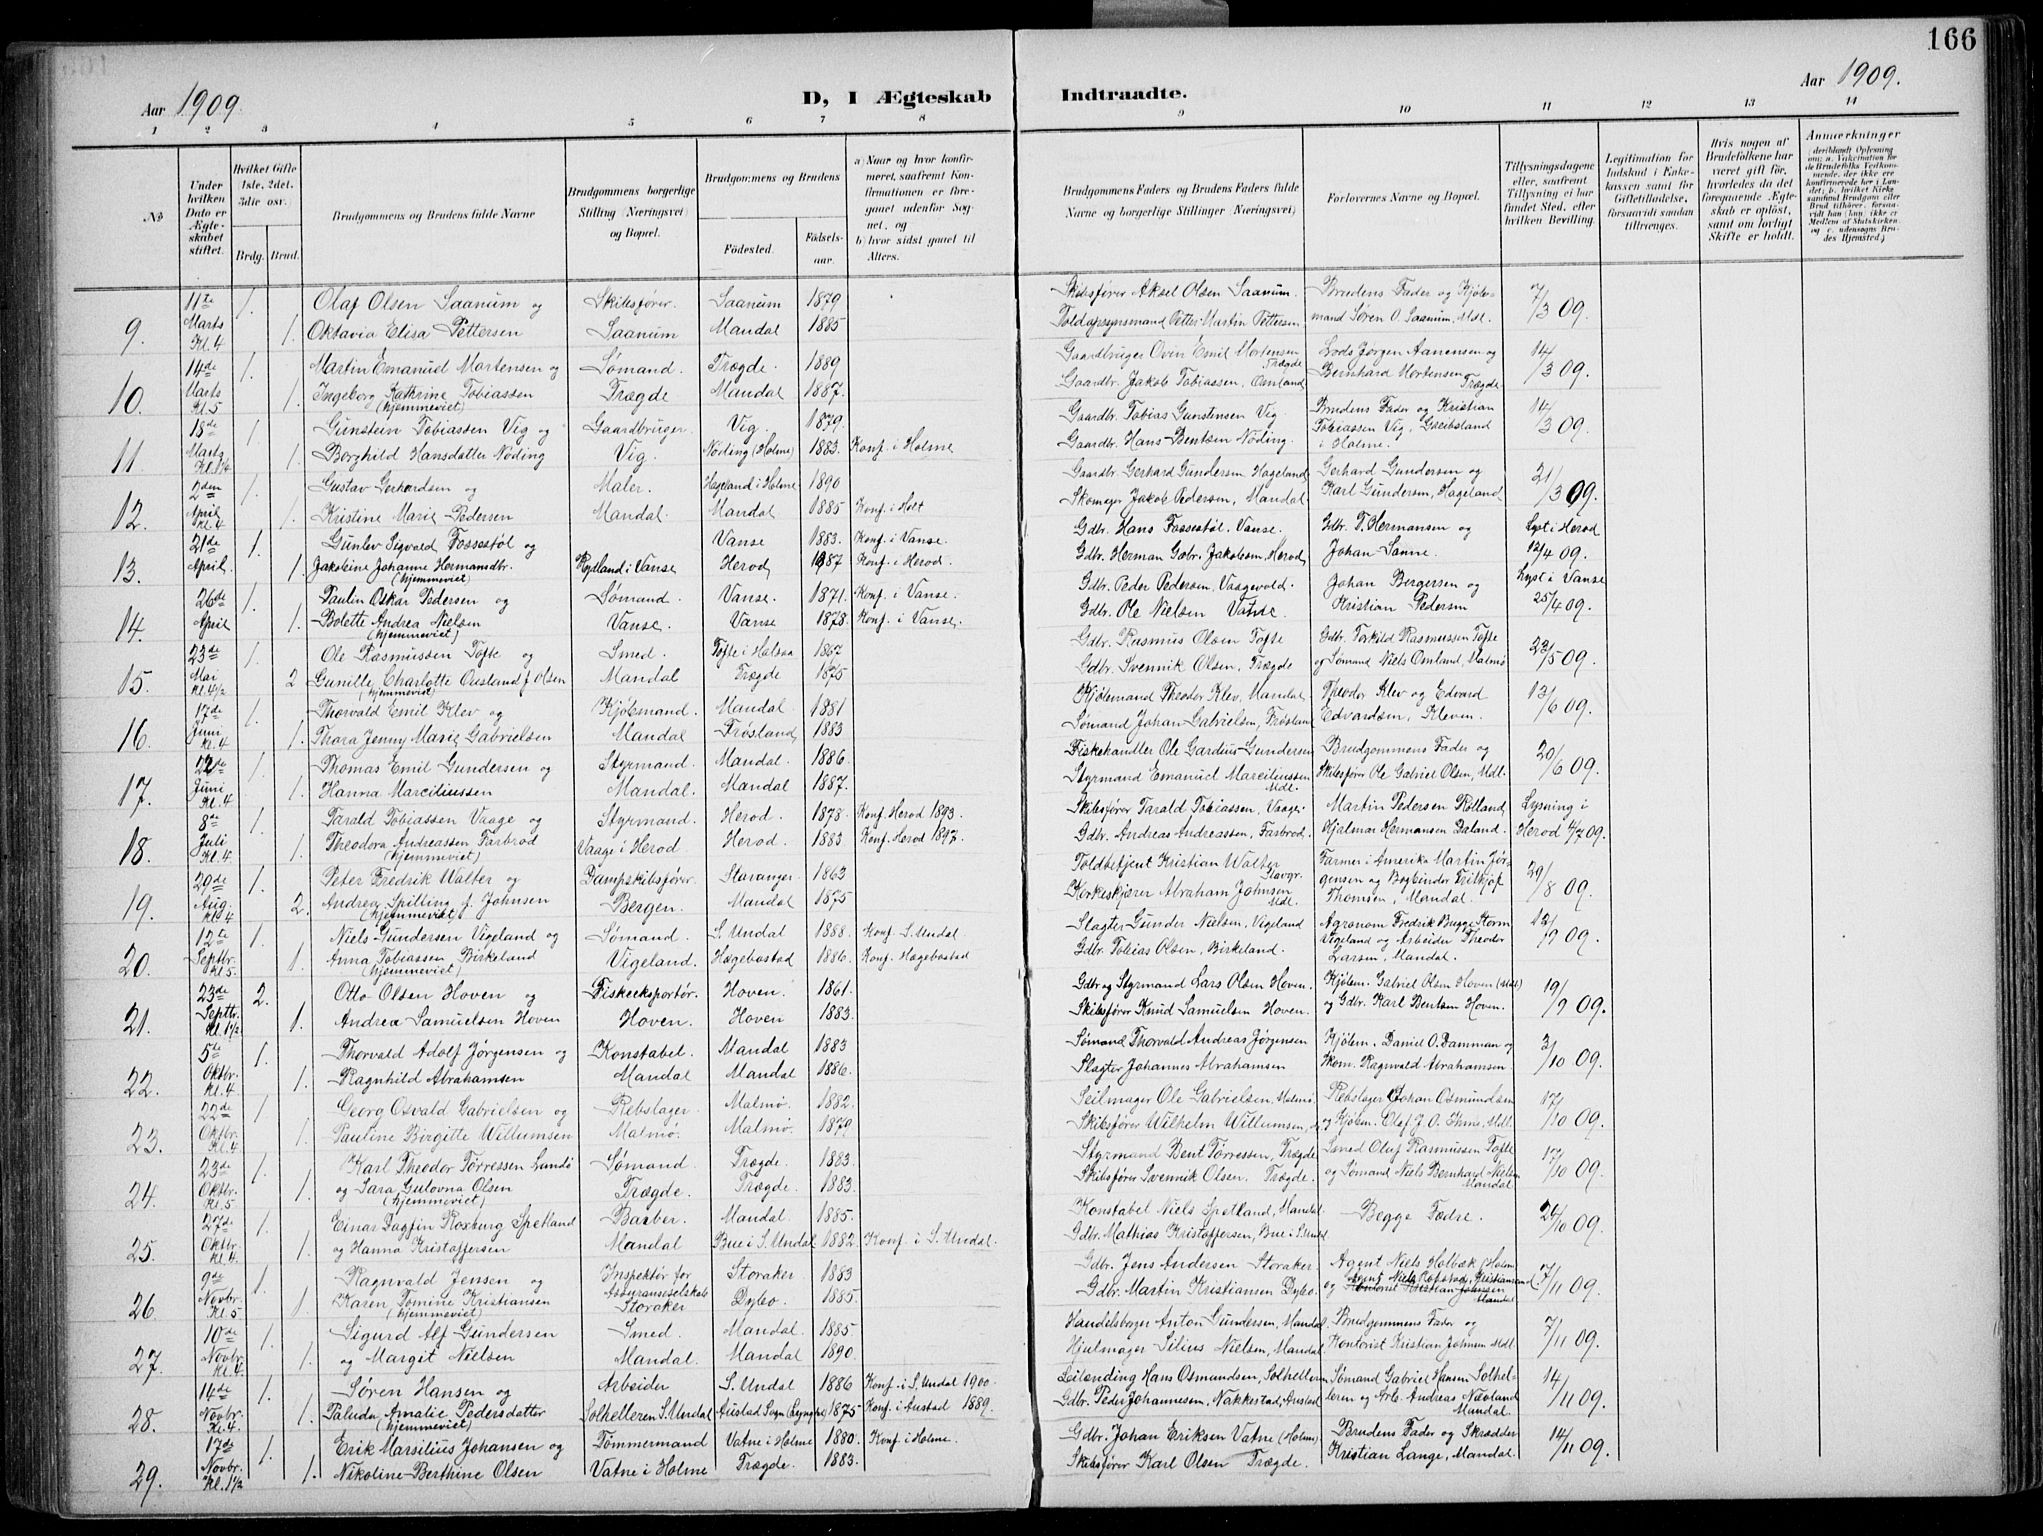 166
Aar 1909.
D, I Ægteskab Indtraadte.
Aar 1909.
1 2 3 4 5 6 7 8 9 10 11 12 13 14
No
Under hvilken Dato er Ægteskabet stiftet.
Hvilket Gifte 1ste, 2det, 3die osv.
Brdg. Brud.
Brudgommens og Brudens fulde Navne
Brudgommens borgerlige Stilling (Næringsvei) og Bopæl.
Brudgommens og Brudens
Fødested.
Fødsels-aar.
a) Naar og hvor konfirmeret, saafremt Konfirmationen er foregaaet udenfor Sognet, og
b) hvor sidst gaaet til Alters.
Brudgommens Faders og Brudens Faders fulde Navne og borgerlige Stillinger (Næringsvei)
Forlovernes Navne og Bopæl.
Tillysningsdagene eller, saafremt Tillysning ei har fundet Sted, efter hvilken Bevilling.
Legitimation for Indskud i Enkekassen samt for Giftetilladelse, forsaavidt saadan tiltrænges.
Hvis nogen af Brudefolkene har været gift før, hvorledes da det foregaaende Ægteskab er opløst, samt om lovligt Skifte er holdt.
Anmærkninger
(deriblandt Oplysning om: a. Vakcination for de Brudefolks Vedkommende, der ikke ere konfirmerede her i Landet; b. hvilket Kirkesamfund Brudgom eller Brud tilhører, forsaavidt han (hun) ikke er Medlem af Statskirken, og c. udensogns Brudes Hjemsted.)
9. 11te Marts Kl. 4 1. Olaf Olsen Saanum og Skibsfører. Saanum 1879 Skibsfører Aksel Olsen Saanum. Brudens Fader og Kjøb- 7/3 09.
1. Oktavia Elisa Pettersen Saanum Mandal 1885 Toldopsynsmand Petter Martin Pettersen, mand Søren O. Saanum, Mdl.
10. 14de Marts Kl. 5 1. Martin Emanuel Mortensen og Sømand. Trægde. 1889 Gaardbruger Ovin Emil Mortensen Trægde Lods Jørgen Aanensen og 14/3 09.
1. Ingeborg Kathrine Tobiassen (hjemmeviet) Trægde Mandal 1887. Gaardbr. Jakob Tobiassen, Omland Bernhard Mortensen Trægde
11. 18de Marts Kl. 1/4 1. Gunstein Tobiassen Vig og Gaardbruger. Vig. 1879. Gaardbr. Tobias Gunstensen Vig. Brudens Fader og Kristian 14/3 09.
1. Borghild Hansdatter Nöding Vig. Nöding (Holme) 1883. Konf. i Holme Gaardbr. Hans Bentsen Nöding. Tobiassen Vig, Greibsland i Holme.
12. 2den April Kl. 4 1. Gustav Gerhardsen og Maler. Hageland i Holme 1890 Gaardbr. Gerhard Gundersen Hageland Gerhard Gundersen og 21/3 09.
1. Kristine Marie Pedersen Mandal Mandal 1885 Konf. i Holt Skomager Jakob Pedersen, Mandal Karl Gundersen, Hageland
13. 21de April. 1. Gunlev Sigvald Fossestøl og Vanse 1883. Konf. i Vanse. Gdbr. Hans Fossestøl. Vanse. Gdbr. T. Hermansen og Lyst i Herod
1. Jakobine Johanne Hermansdtr. (hjemmeviet) Rydland i Vanse Herod 1887 Konf. i Herod. Gdbr. Herman Gabr. Jakobsen, Herod Johan Sanne. 12/4 09.
14. 26de April 1. Paulin Oskar Pedersen og Sømand. Vanse. 1871. Konf. i Vanse. Gdbr. Peder Pedersen, Vaagevold. Johan Bergersen og Lyst i Vanse
1. Bolette Andrea Nielsen (hjemmeviet) Vanse. Vanse 1878. Konf. i Vanse. Gdbr. Ole Nielsen Vatne Kristian Pedersen 25/4 09.
15. 23de Mai Kl. 4 1/2 1. Ole Rasmussen Tofte og Smed. Tofte i Halsaa 1867 Gdbr. Rasmus Olsen Tofte Gdbr. Torkild Rasmussen Tofte 23/5 09.
2 Gunille Charlotte Ousland f. Olsen (hjemmeviet) Mandal Trægde 1875 Gdbr. Svennik Olsen, Trægde og Sømand Niels Omland, Malmø
16. 17de Juni Kl. 4 1. Thorvald Emil Klev og Kjøbmand. Mandal 1881 Kjøbmand Theodor Klev, Mandal Theodor Klev og Edvard 13/6 09.
1. Thora Jenny Marie Gabrielsen Mandal Frøsland 1883 Sømand Johan Gabrielsen, Frøsland Edvardsen, Kleven.
17. 22de Juni Kl. 4 1. Thomas Emil Gundersen og Styrmand. Mandal. 1886 Fiskehandler Ole Gardius Gundersen Brudgommens Fader og 20/6 09.
1. Hanna Marciliussen Mandal. Mandal 1887. Styrmand Emanuel Marciliussen Mdl. Skibsfører Ole Gabriel Olsen, Mdl.
18. 8de Juli Kl. 4 1. Tarald Tobiassen Vaage og Styrmand. Herod. 1878. Konf. Herod 1893. Skibsfører Tarald Tobiassen, Vaage. Martin Pedersen Rolland Lysning i
1. Theodora Andreassen Farbrod (hjemmeviet) Vaage i Herod. Herod. 1883 Konf. Herod 1897. Gdbr. Andreas Andreassen, Farbrod. Hjalmar Hermansen Daland. Herod 4/7 09.
19. 29de Aug. Kl. 4 1. Peter Fredrik Walter og Dampskibsfører. Stavanger. 1863 Toldbetjent Kristian Walter Stavgr. Farmer i Amerika Martin Jør- 29/8 09.
2. Andrea Spilling f. Johnsen (hjemmeviet) Bergen. Mandal 1875 Kirkeskjærer Abraham Johnsen Mdl. gensen og Bogbinder Fritkjof Thomsen, Mandal.
20. 12te Septbr. Kl. 5. 1. Niels Gundersen Vigeland og Sømand. S. Undal 1888. Konf. S. Undal Slagter Gunder Nielsen, Vigeland Agronom Fredrik Bugge Storm 12/9 09.
1. Anna Tobiassen Birkeland (hjemmeviet) Vigeland. Hægebostad 1886. Konf. Hægebostad Gdbr. Tobias Olsen, Birkeland. Vigeland og Arbeider Theodor Larsen, Mandal.
21. 23de Septbr. Kl. 1 1/2 2. Otto Olsen Hoven og Fiskeeksportør. Hoven. 1861. Gdbr og Styrmand Lars Olsen Hoven. Kjøbm. Gabriel Olsen Hoven (Mdl) 19/9 09.
1. Andrea Samuelsen Hoven Hoven. Hoven 1883. Skibsfører Knud Samuelsen Hoven. og Gdbr. Karl Bentsen Hoven.
22. 5te Oktbr. Kl. 4. 1. Thorvald Adolf Jørgensen og Konstabel. Mandal 1883 Sømand Thorvald Andreas Jørgensen Kjøbm. Daniel O. Damman og 3/10 09.
1. Ragnhild Abrahamsen Mandal Mandal 1886. Slagter Johannes Abrahamsen Skom. Ragnvald Abrahamsen.
23. 22de Oktbr. Kl. 4. 1. Georg Osvald Gabrielsen og Rebslager. Malmø. 1882. Seilmager Ole Gabrielsen, Malmø. Rebslager Johan Osmundsen 17/10 09.
1. Pauline Birgitte Willumsen Malmø. Malmø. 1879 Skibsfører Wilhelm Willumsen, og Kjøbm. Olaf J. O. Mdl.
24. 23de Oktbr. Kl. 5 1. Karl Theodor Torressen Lundø Sømand. Trægde. 1883. Styrmand Bent Torressen, Trægde Smed Oluf Rasmussen Tofte 17/10 09.
1. og Sara Gulovna Olsen (hjemmeviet) Trægde. Trægde. 1883. Skibsfører Svennik Olsen. Trægde. og Sømand Niels Bernhard Mandal
25. 27de Oktbr. Kl. 4. 1. Einar Dagfin Roxburg Spetland Barber. Mandal 1885. Konstabel Niels Spetland, Mandal Begge Fædre. 24/10 09.
1. og Hanna Kristoffersen Mandal Bue i S. Undal 1882. Konf. i S. Undal. Gdbr. Mathias Kristoffersen, Bue i S. Undal
26. 9de Novbr. Kl. 5. 1. Ragnvald Jensen og Inspektør for Storaker 1883 Gdbr. Jens Andersen Storaker. Agent Niels Holbæk (Holm 7/11 09.
1. Karen Tomine Kristiansen (hjemmeviet) Assuranseselskab Storaker Dybo 1885. Gdbr. Martin Kristiansen Dybo. og Agent Niels Robstad, Kristiansand Kontorist Kristian Johnsen Mandal
27. 10de Novbr. Kl. 4. 1. Sigurd Alf Gundersen Smed. Mandal. 1885. Handelsborger Anton Gundersen, Mandal Brudgommens Fader og 7/11 09.
1. og Margit Nielsen Mandal. Mandal 1890. Hjulmager Silius Nielsen, Mandal Kontorist Kristian Johnsen Mdl.
28. 14de Novbr. Kl. 4. 1. Søren Hansen og Arbeider S. Undal 1886 Konf. i S. Undal 1900. Leilending Hans Osmundsen, Solhelleren Sømand Gabriel Hansen Solhel- 14/11 09.
1. Paluda Amalie Pedersdatter (hjemmeviet) Solhelleren S. Undal Austad Sogn (Lyngdal) 1875 Konf. i Austad 1889. Gdbr. Peder Johannesen, Nakkestad, Austad leren og Arb. Andreas Nævland Mandal.
29. 17de Novbr. Kl. 1 1/2 1. Erik Marsilius Johansen og Tømmermand Vatne i Holme 1880. Konf. i Holme. Gdbr. Johan Eriksen Vatne (Holme) Brudens Fader og Skrædder 14/11 09.
1. Nikoline Berthine Olsen Vatne i Holme Trægde. 1883. Skibsfører Karl Olsen Trægde. Kristian Lange, Mandal.